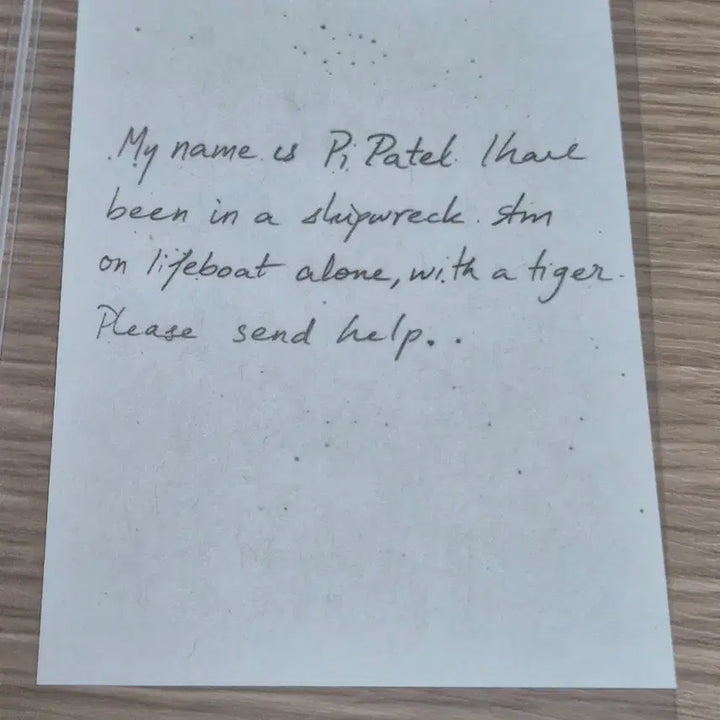 My name is Pi Patel. I have
been in a shipwreck. Im
on lifeboat alone, with a tiger.
Please send help..